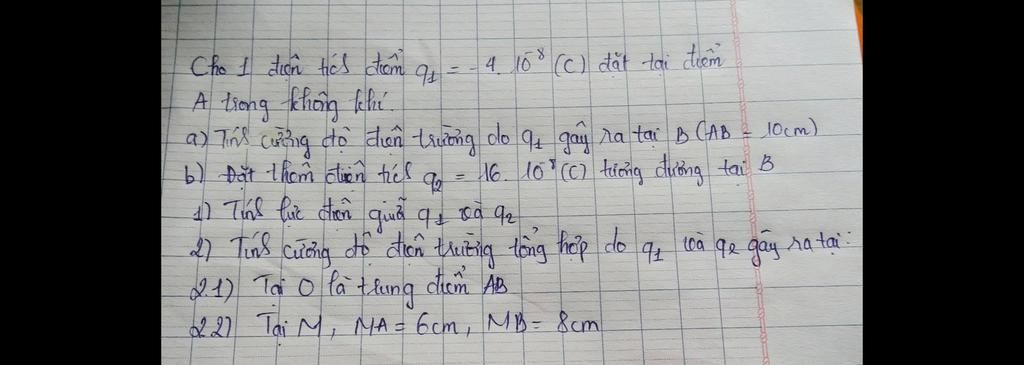 Cho 1 điện tích điểm q₁ = -4.10⁻⁸ (C) đặt tại điểm
A trong không khí.
a) Tính cường độ điện trường do q₁ gây ra tại B (AB = 10cm)
b) Đặt thêm điện tích q₂ = 16.10⁻⁸ (C) tương đương tại B
1) Tính lực điện giữa q₁ và q₂
2) Tính cường độ điện trường tổng hợp do q₁ và q₂ gây ra tại:
2.1) Tại O là trung điểm AB
2.2) Tại M, MA = 6cm, MB = 8cm